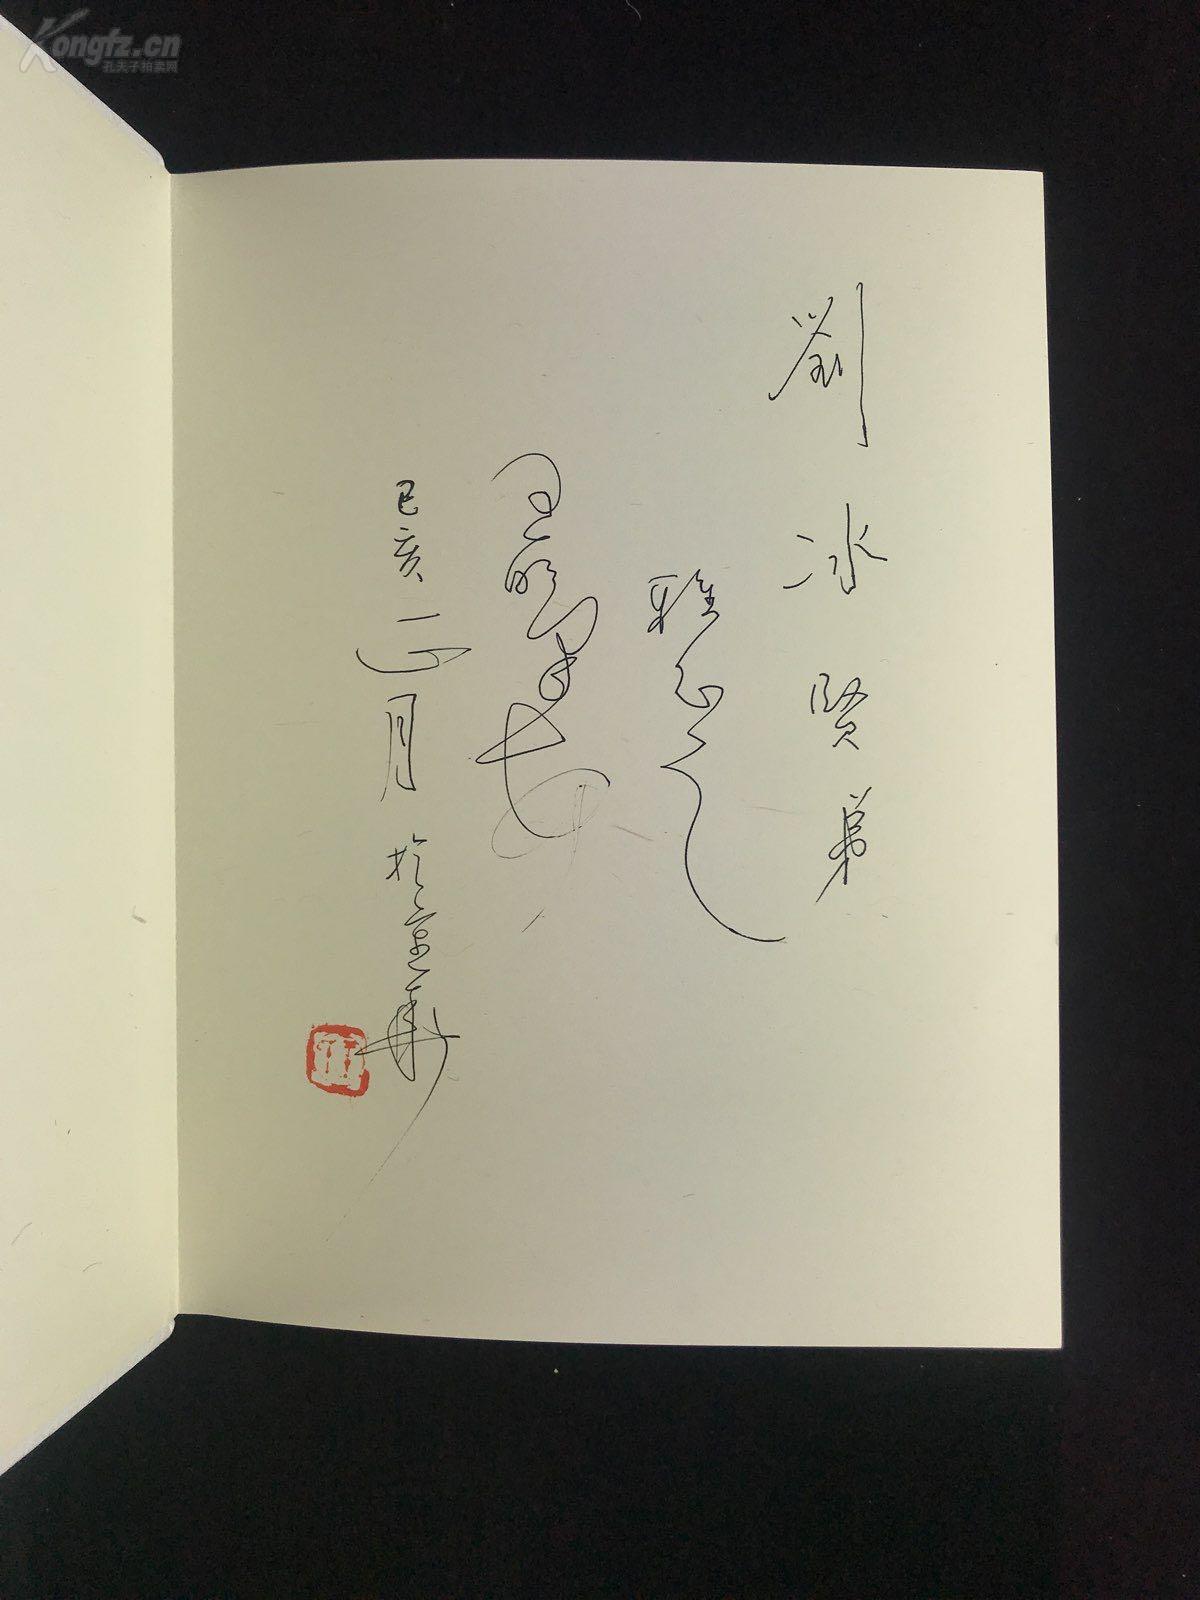 Kongfz.cn
孔夫子拍卖网
劉冰賢弟
雅正
王明明
己亥正月於京華